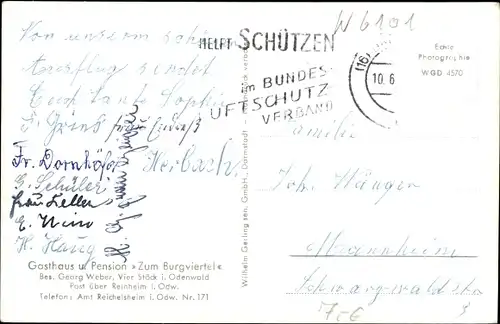 Von unserm schönen
Ausflug sendet
Euch Tante Sophie
Fr. Dornhöfer
G. Schüler
Frau Keller
H. Haug
Herbach
Gasthaus u. Pension »Zum Burgviertel«
Bes. Georg Weber, Vier Stöck i. Odenwald
Post über Reinheim i. Odw.
Telefon: Amt Reichelsheim i. Odw. Nr. 171
Wilhelm Gerling sen. GmbH., Darmstadt
N 6101
HELFT SCHÜTZEN
im BUNDES-
LUFTSCHUTZ
VERBAND
(16)
10.6
Echte
Photographie
WGD 4570
Familie
Joh. Wänger
Mannheim
Schwarzwaldstr.
7.-€